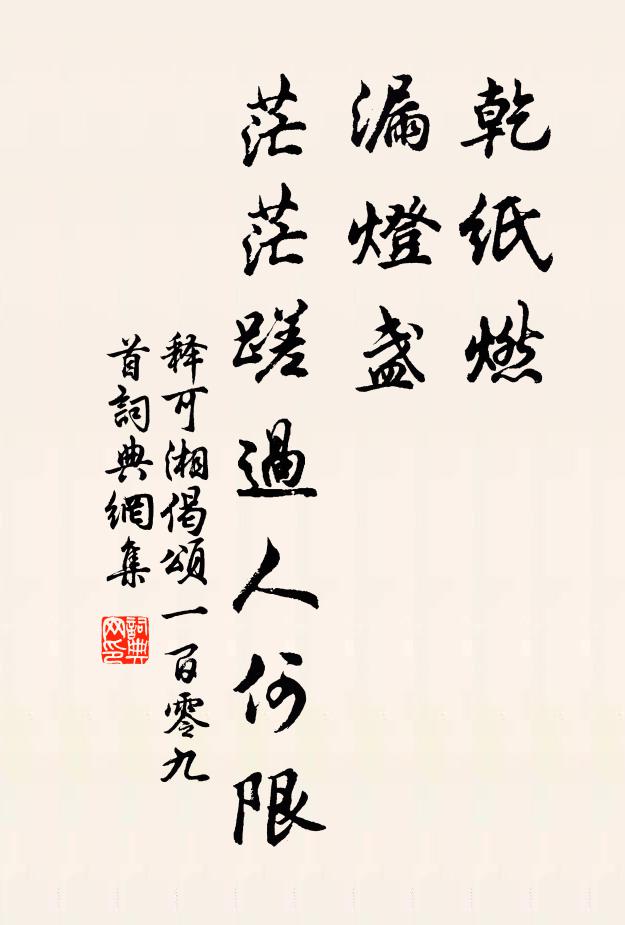 乾紙燃
漏燈盞
茫茫蹉過人何限
释可湘偈頌一百零九
首詞典網集
詞典网印